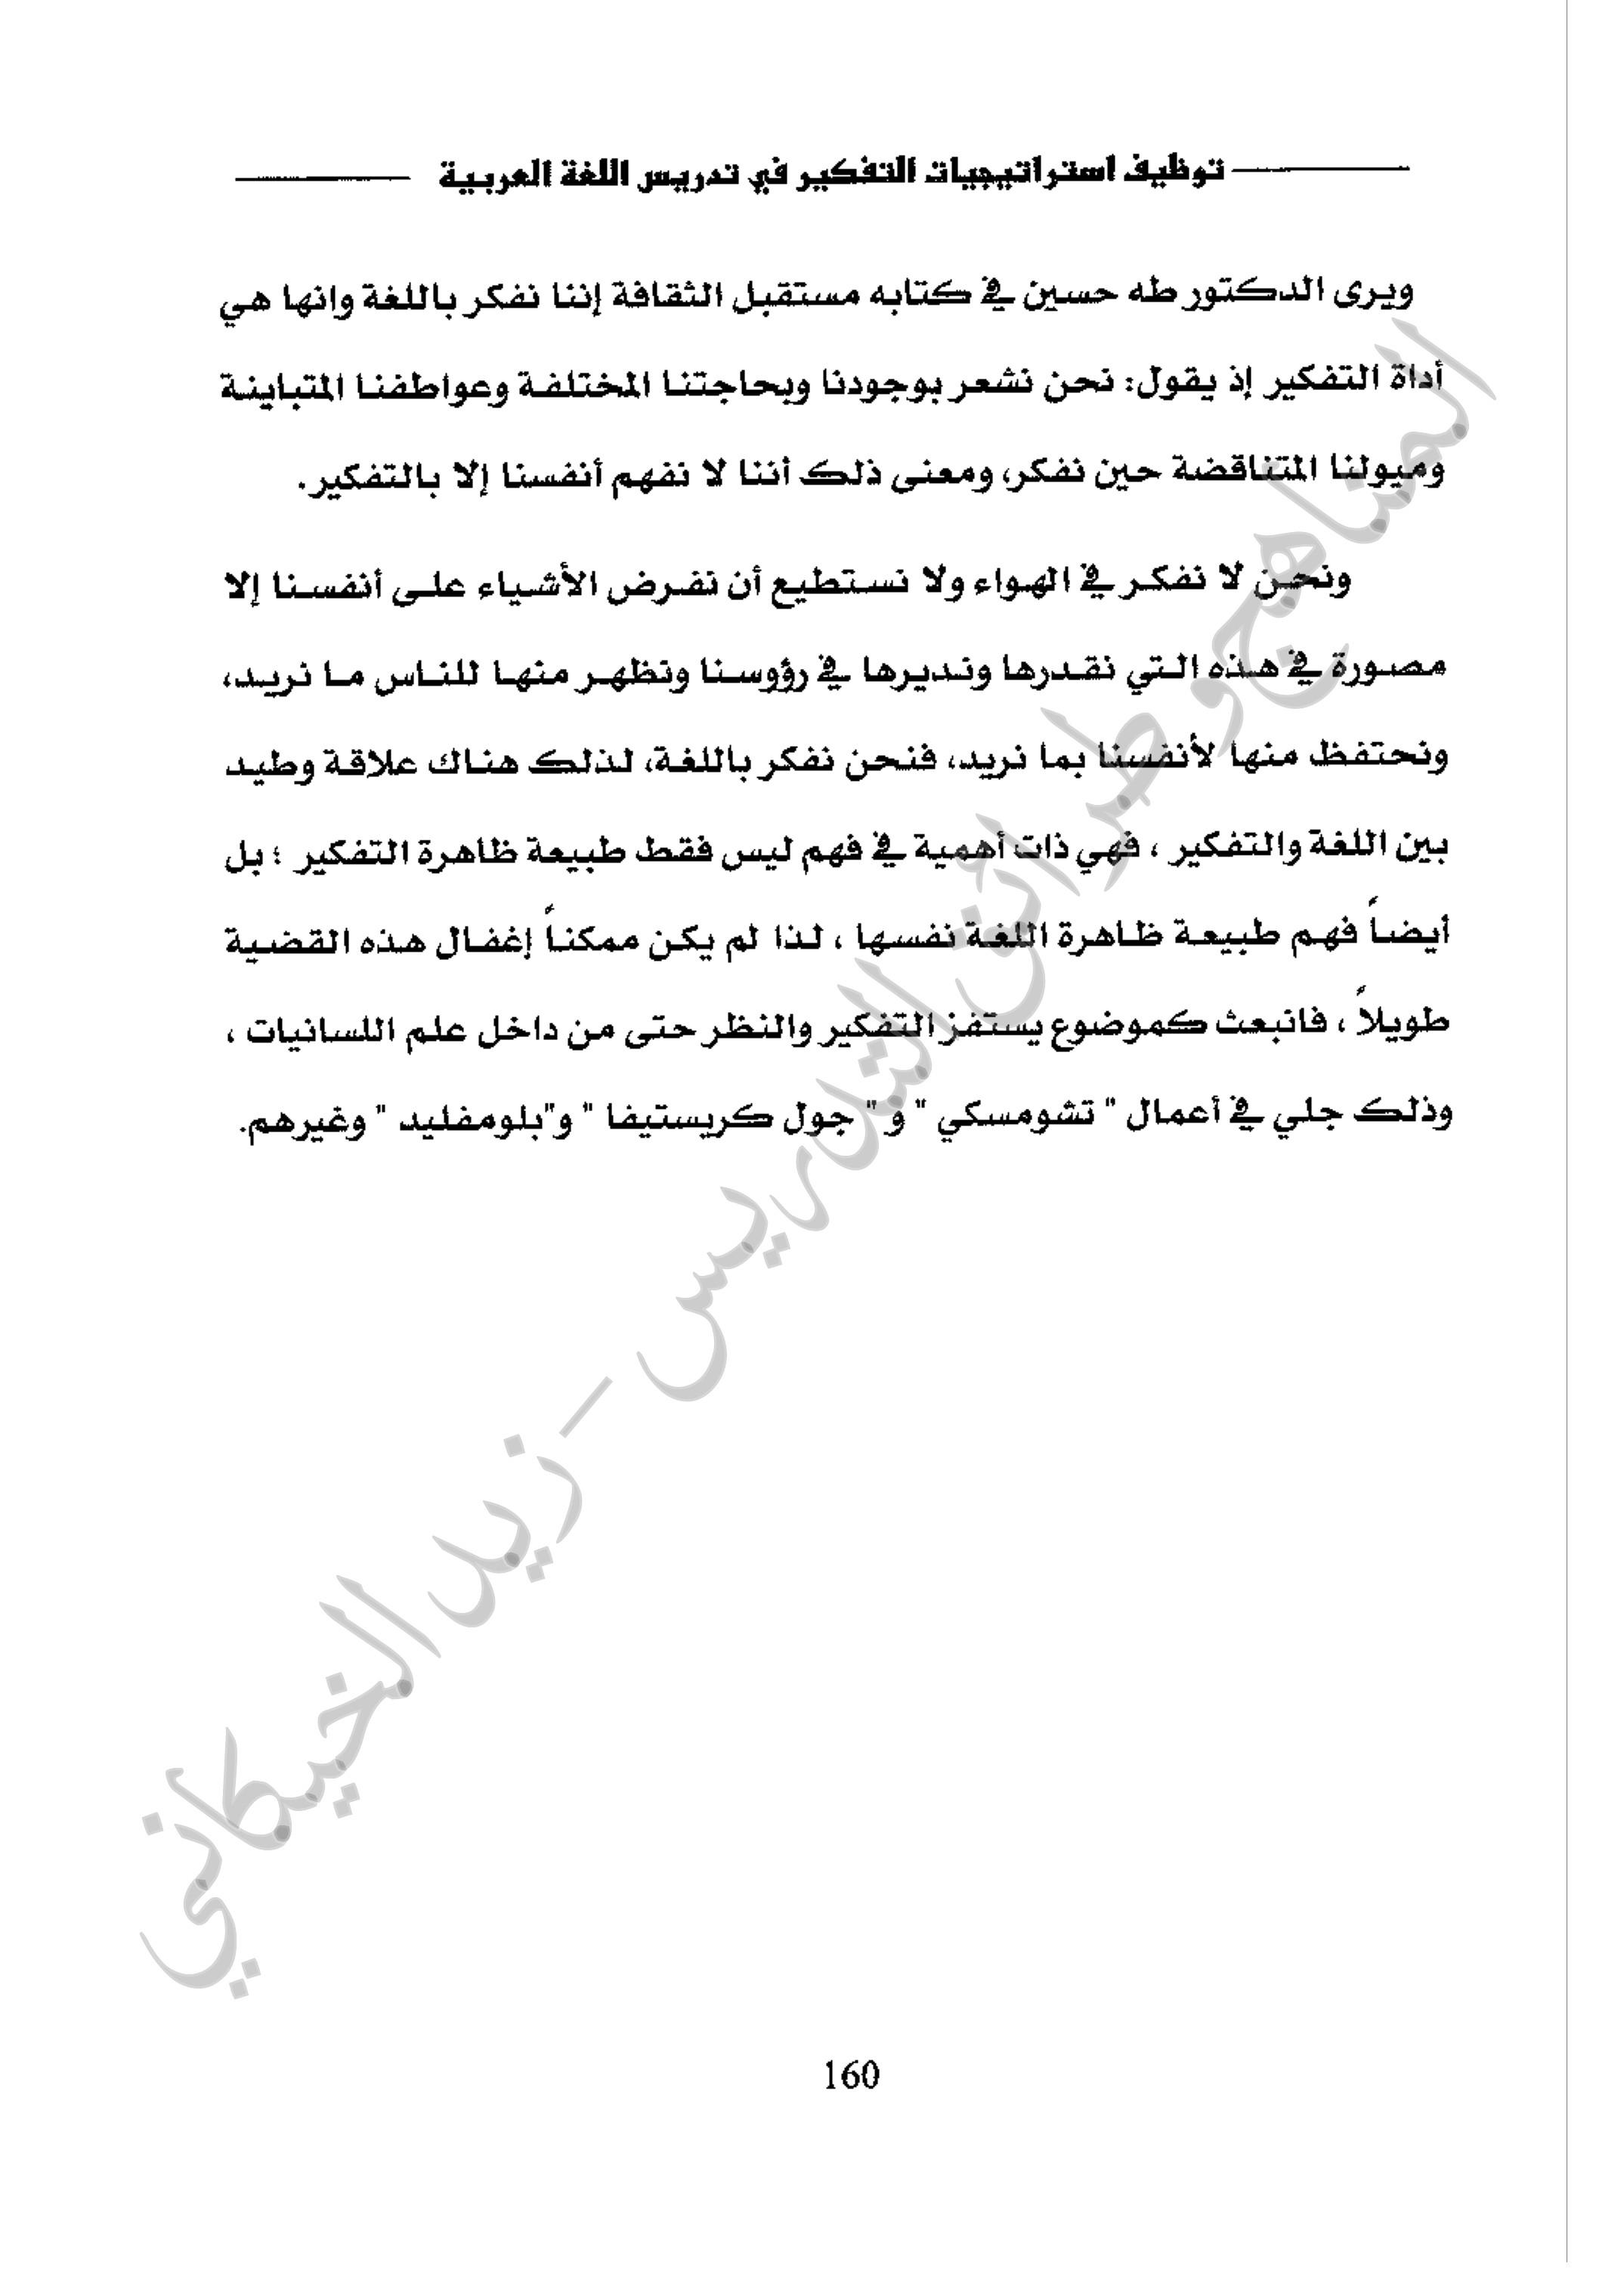 توظيف استراتيجيات التفكير في تدريس اللغة العربية
ويرى الدكتور طه حسين في كتابه مستقبل الثقافة إننا نفكر باللغة وانها هي
أداة التفكير إذ يقول: نحن نشعر بوجودنا وبحاجتنا المختلفة وعواطفنا المتباينة
وميولنا المتناقضة حين نفكر، ومعنى ذلك أننا لا نفهم أنفسنا إلا بالتفكير.
ونحن لا نفكر في الهواء ولا نستطيع أن نفرض الأشياء على أنفسنا إلا
مصورة في هذه التي نقدرها ونديرها في رؤوسنا ونظهر منها للناس ما نريد،
ونحتفظ منها لأنفسنا بما نريد، فنحن نفكر باللغة، لذلك هناك علاقة وطيد
بين اللغة والتفكير ، فهي ذات أهمية في فهم ليس فقط طبيعة ظاهرة التفكير ؛ بل
أيضاً فهم طبيعة ظاهرة اللغة نفسها ، لذا لم يكن ممكناً إغفال هذه القضية
طويلاً ، فانبعث كموضوع يستفز التفكير والنظر حتى من داخل علم اللسانيات ،
وذلك جلي في أعمال " تشومسكي " و " جول كريستيفا " و"بلومفليد " وغيرهم.
المناهج وطرائق التدريس - زيد الخيكاني
160